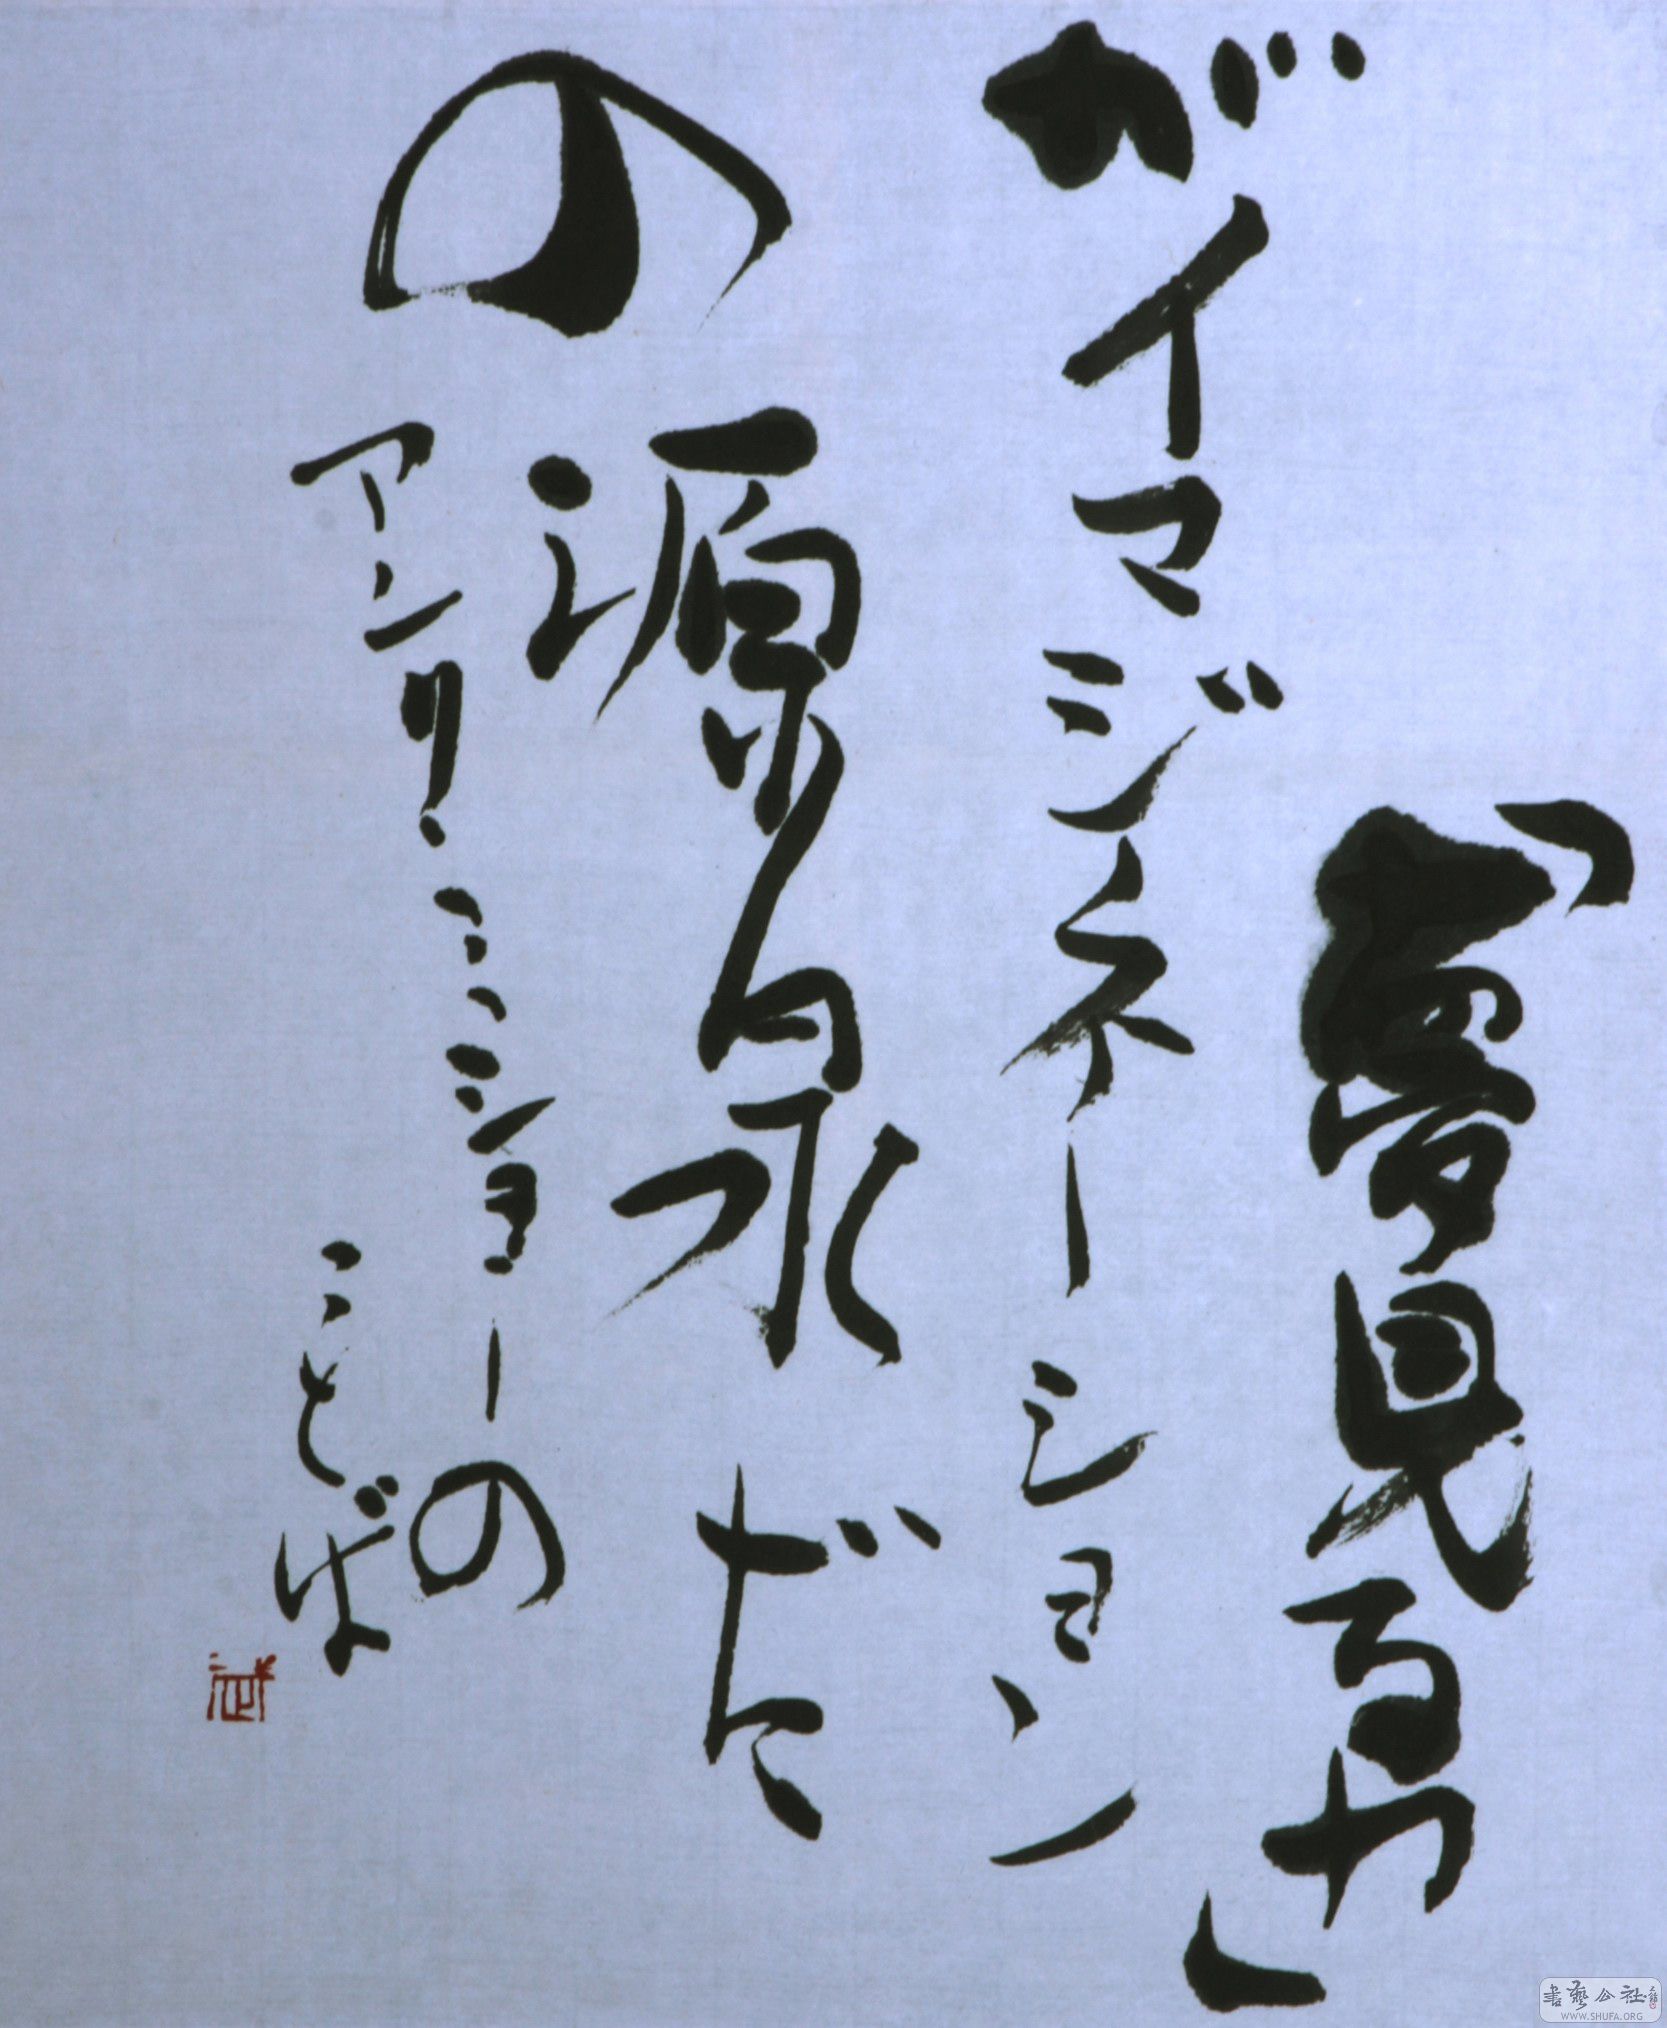 「夢見る力」
がイマジネーション
の源泉だ
アンリ・ミショーの
ことば
書藝公社
WWW.SHUFA.ORG